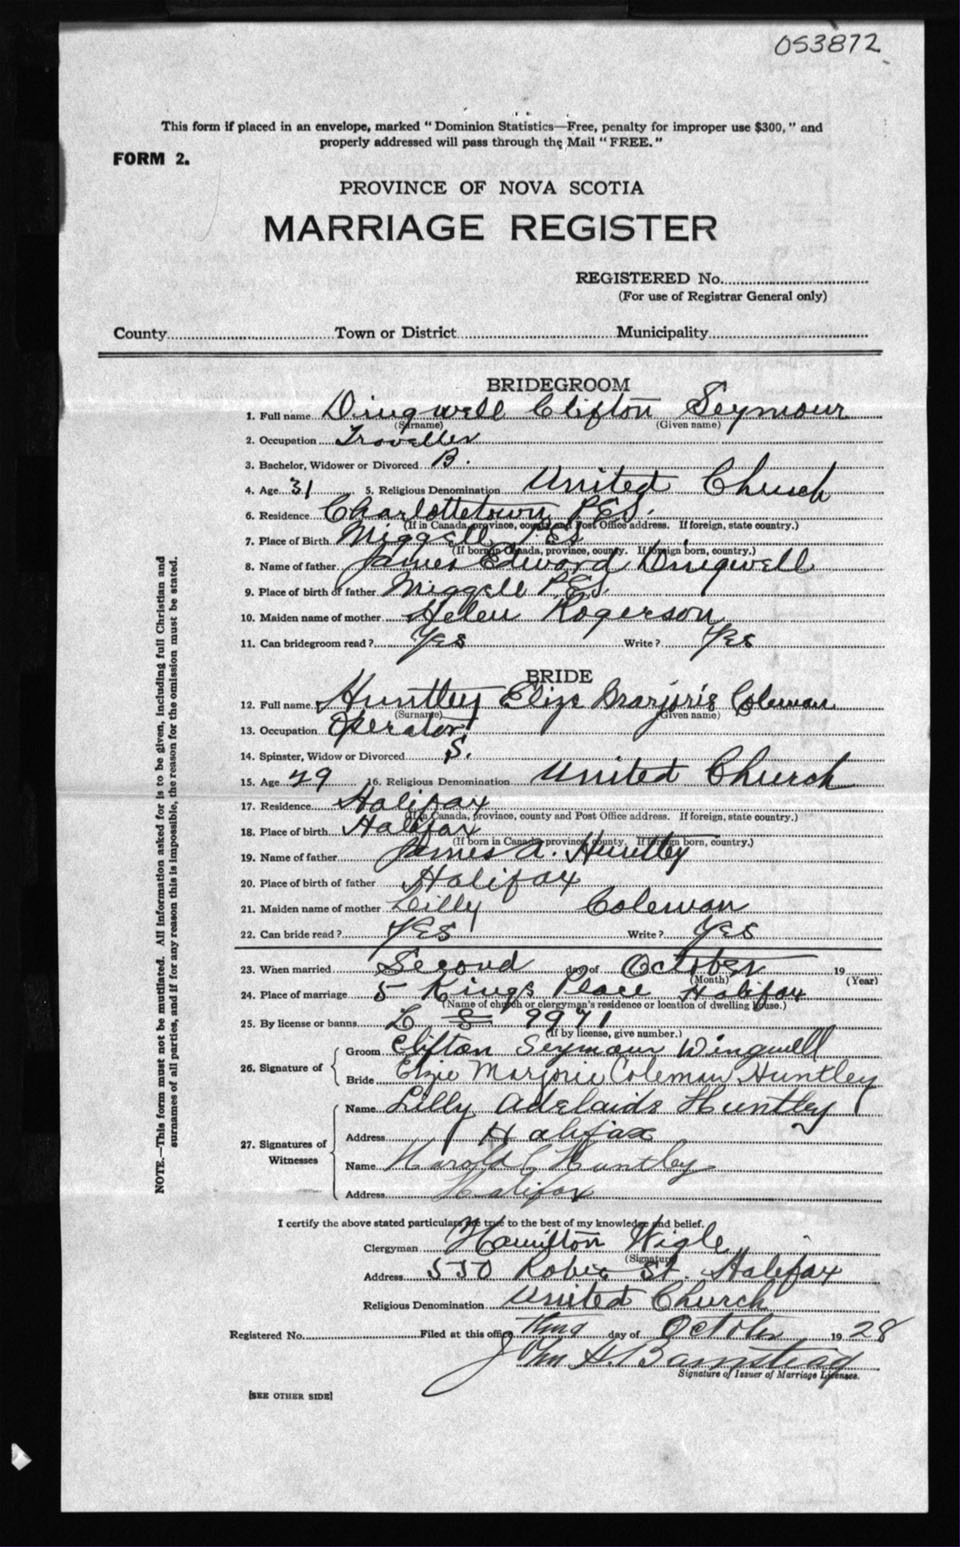 053872
This form if placed in an envelope, marked "Dominion Statistics—Free, penalty for improper use $300," and
properly addressed will pass through the Mail "FREE."
FORM 2.
PROVINCE OF NOVA SCOTIA
MARRIAGE REGISTER
REGISTERED No.
(For use of Registrar General only)
County Town or District Municipality
BRIDEGROOM
1. Full name Dingwell Clifton Seymour
(Surname) (Given name)
2. Occupation Traveller
3. Bachelor, Widower or Divorced B.
4. Age 31 5. Religious Denomination United Church
6. Residence Charlottetown P.E.I.
(If in Canada, province, county and Post Office address. If foreign, state country.)
7. Place of Birth
(If born in Canada, province, county. If foreign born, country.)
8. Name of father James Edward Dingwell
9. Place of birth of father
10. Maiden name of mother Helen Rogerson
11. Can bridegroom read? Yes Write? Yes
BRIDE
12. Full name Huntley Elzie Marjorie Coleman
(Surname) (Given name)
13. Occupation Operator
14. Spinster, Widow or Divorced S.
15. Age 29 16. Religious Denomination United Church
17. Residence Halifax
(If in Canada, province, county and Post Office address. If foreign, state country.)
18. Place of birth Halifax
(If born in Canada, province, county. If foreign born, country.)
19. Name of father James A. Huntley
20. Place of birth of father Halifax
21. Maiden name of mother Lilly Coleman
22. Can bride read? Yes Write? Yes
23. When married Second day of October 19
(Month) (Year)
24. Place of marriage 5 Kings Place Halifax
(Name of church or clergyman's residence or location of dwelling house.)
25. By license or banns L 9971
(If by license, give number.)
26. Signature of
Groom Clifton Seymour Dingwell
Bride Elzie Marjorie Coleman Huntley
27. Signatures of Witnesses
Name Lilly Adelaide Huntley
Address Halifax
Name Harold Huntley
Address Halifax
I certify the above stated particulars are true to the best of my knowledge and belief.
Clergyman Hamilton Wigle
(Signature)
Address 530 Robie St. Halifax
Religious Denomination United Church
Registered No. Filed at this office day of October 1928
John H. Barnstead
Signature of Issuer of Marriage Licenses.
[SEE OTHER SIDE]
NOTE.—This form must not be mutilated. All information asked for is to be given, including full Christian and
surnames of all parties, and if for any reason this is impossible, the reason for the omission must be stated.